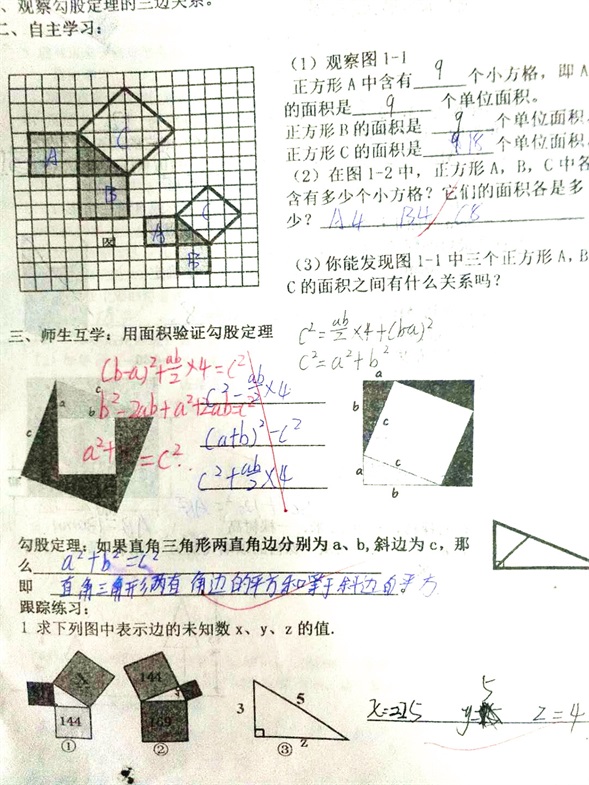 、观察勾股定理的三边关系。
二、自主学习：
（1）观察图1-1
正方形A中含有 9 个小方格，即A
的面积是 9 个单位面积。
正方形B的面积是 9 个单位面积。
正方形C的面积是 18 个单位面积。
（2）在图1-2中，正方形A，B，C中各
含有多少个小方格？它们的面积各是多
少？ A4 B4 C8
A
B
C
图
A
B
C
（3）你能发现图1-1中三个正方形A，B
C的面积之间有什么关系吗？
三、师生互学：用面积验证勾股定理
c²=ab/2×4+(b-a)²
c²=a²+b²
(b-a)²+ab/2×4=c²
b²-2ab+a²+2ab=c²
a²+ =c²
c²-ab/2×4
(a+b)²-c²
c²+ab/2×4
c
a
b
c
a
b
c
a
c
b
勾股定理：如果直角三角形两直角边分别为a、b,斜边为c，那
么 a²+b²=c²
即 直角三角形两直角边的平方和等于斜边的平方
跟踪练习：
1 求下列图中表示边的未知数x、y、z的值.
X
144
①
144
169
②
3
5
z
③
5
z=4